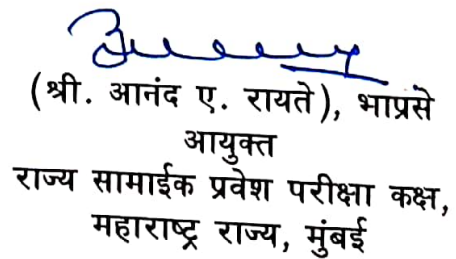 (श्री. आनंद ए. रायते), भाप्रसे
आयुक्त
राज्य सामाईक प्रवेश परीक्षा कक्ष,
महाराष्ट्र राज्य, मुंबई